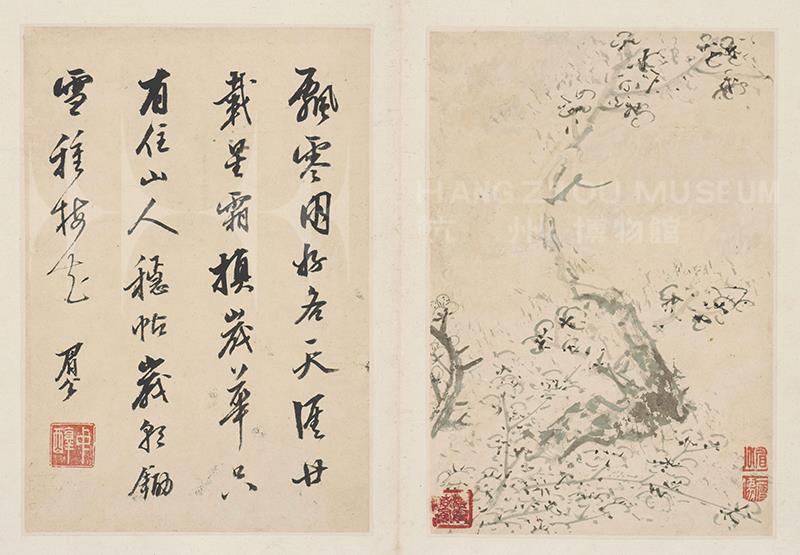 飄零朋好各天涯廿
載星霜換歲華只
有住山人穩帖歲鋤
雪種梅花 眉公
HANGZHOU MUSEUM
杭州博物館